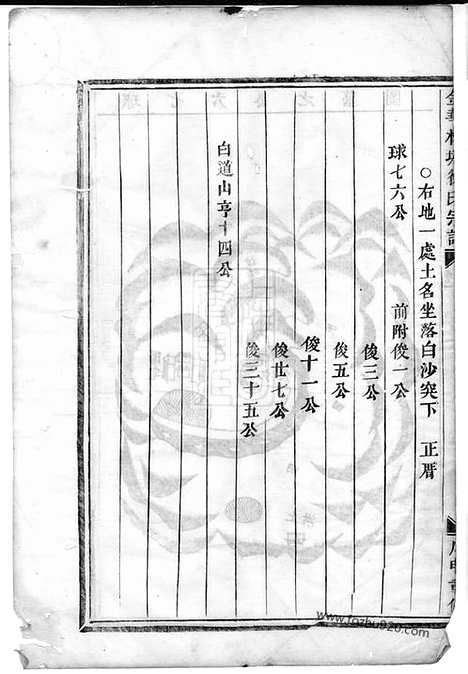 ○右地一處土名坐落白沙突下　正厝
球七六公　前附俊一公
俊三公
俊五公
俊十一公
俊廿七公
俊三十五公
白道山亨十四公
www.fozhu920.com